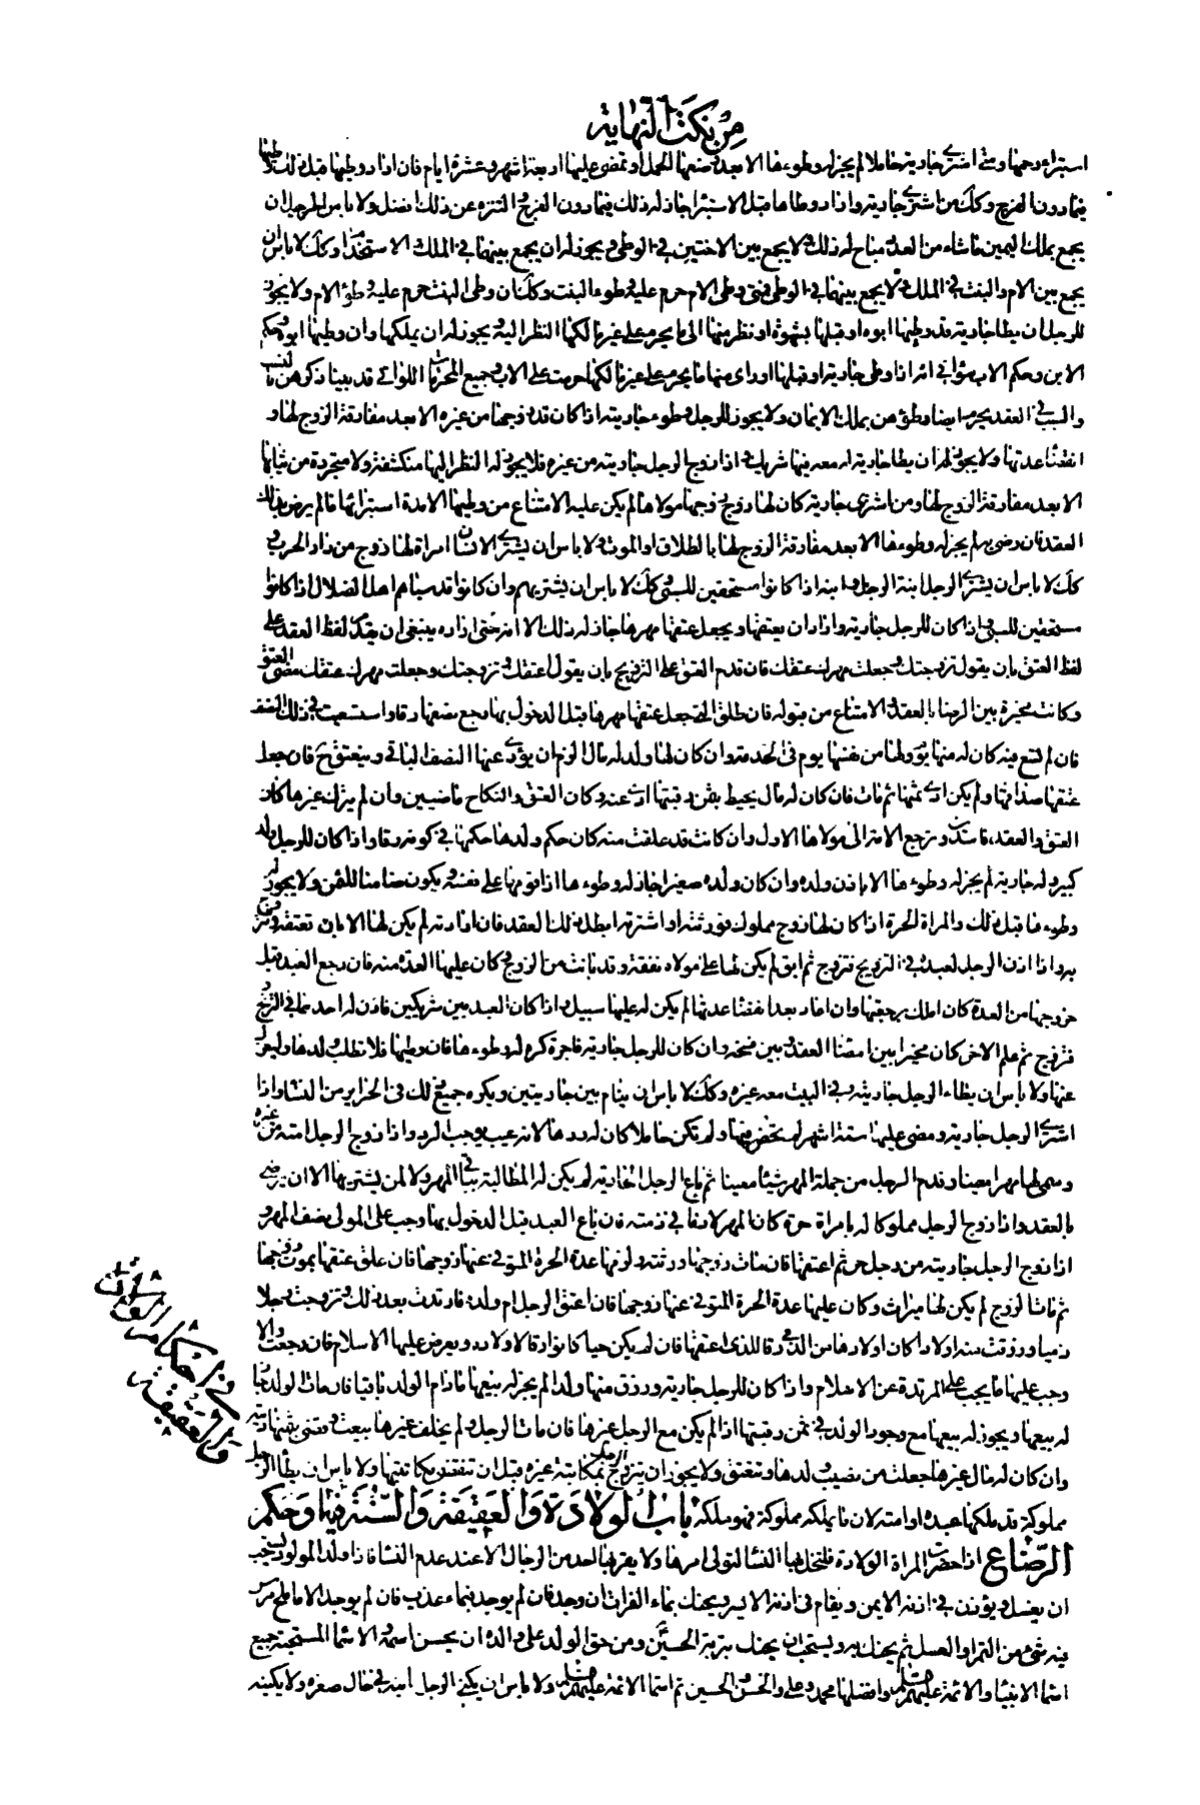 من نكت النهاية
استبراء رحمها ومتى اشترى جارية حاملا لم يجز له وطوءها الا بعد وضعها الحمل او تمضى عليها اربعة اشهر وعشرة ايام فان اراد وطيها قبل ذلك وطيها
فيما دون الفرج وكك من اشترى جارية واراد وطاها قبل الاستبرا جاز له ذلك فيما دون الفرج والتنزه عن ذلك افضل ولا باس للرجل ان
يجمع بملك اليمين ما شاء من العدد مباح له ذلك ولا يجمع بين الاختين في الوطى ويجوز له ان يجمع بينهما في الملك والاستخدام وكك لا باس ان
يجمع بين الام والبنت في الملك ولا يجمع بينهما في الوطى فمتى وطى الام حرم عليه وطوء البنت وكك ان وطى البنت حرم عليه وطؤ الام ولا يجوز
للرجل ان يطا جارية قد وطيها ابوه او قبلها بشهوة او نظر منها الى ما يحرم على غير مالكها النظر اليه ويجوز له ان يملكها وان وطيها ابوه وحكم
الابن وحكم الاب سواء في انه اذا وطى جارية او قبلها او راى منها ما يحرم على غير مالكها حرمت على الاب وجميع المحرمات اللواتي قد بينا ذكرهن بالنسب
والسبب في العقد يحرم ايضا وطؤهن بملك الايمان ولا يجوز للرجل وطوء جاريته اذا كان قد زوجها من غيره الا بعد مفارقة الزوج لها و
انقضاء عدتها ولا يجوز له ان يطا جارية له معه فيها شريك واذا زوج الرجل جاريته من غيره فلا يجوز له النظر اليها منكشفة ولا متجردة من ثيابها
الا بعد مفارقة الزوج لها ومن اشترى جارية كان لها زوج زوجها مولاها لم يكن عليه الامتناع من وطيها الا مدة استبرائها ما لم يرض بذلك
العقد فان رضى به لم يجز له وطوءها الا بعد مفارقة الزوج لها بالطلاق او الموت ولا باس ان يشترى الانسان امراة لها زوج من دار الحرب و
كك لا باس ان يشترى الرجل ابنة الرجل وابنه اذا كانوا مستحقين للسبى وكك لا باس ان يشتريهم وان كانوا قد سباهم اهل الضلال اذا كانوا
مستحقين للسبى واذا كان للرجل جارية واراد ان يعتقها ويجعل عتقها مهرها جاز له ذلك الا انه متى اراده ينبغى ان يقدم لفظ العقد على
لفظ العتق بان يقول تزوجتك وجعلت مهرك عتقك فان قدم العتق على التزويج بان يقول اعتقتك وتزوجتك وجعلت مهرك عتقك مضى العتق
وكانت مخيرة بين الرضا بالعقد والامتناع من قبوله فان طلق التى جعل عتقها مهرها قبل الدخول بها رجع نصفها رقا واستسعيت في ذلك النصف
فان لم تسع فيه كان له منها يوم ولها من نفسها يوم في الخدمة وان كان لها ولد له مال الزم ان يؤدى عنها النصف الباقى وتنعتق ح فان جعل
عتقها صداقها ولم يكن ادى ثمنها ثم مات فان كان له مال يحيط بثمن رقبتها ادى عنه وكان العتق والنكاح ماضيين وان لم يترك غيرها كان
العتق والعقد فاسدين وترجع الامة الى مولاها الاول وان كانت قد علقت منه كان حكم ولدها حكمها في كونه رقا واذا كان للرجل ولد
كبير وله جارية لم يجز له وطوءها الا باذن ولده وان كان ولده صغيرا جاز له وطوءها اذا قومها على نفسه ويكون ضامنا للثمن ولا يجوز له
وطوءها قبل ذلك والمراة الحرة اذا كان لها زوج مملوك فورثته او اشترته ابطل ذلك العقد فان ارادته لم يكن لها الا بان تعتقه وتتزوج
به واذا اذن الرجل لعبده في التزويج فتزوج ثم ابق لم يكن لها على مولاه نفقة وقد بانت من الزوج وكان عليها العدة منه فان رجع العبد قبل
خروجها من العدة كان املك برجعتها وان عاد بعد انقضاء عدتها لم يكن له عليها سبيل واذا كان العبد بين شريكين فاذن له احدهما في التزويج
فتزوج ثم علم الاخر كان مخيرا بين امضاء العقد وبين فسخه وان كان للرجل جارية فاجرة كره له وطوءها فان وطيها فلا يطلب ولدها وليعزل
عنها ولا باس ان يطاء الرجل جاريته وفى البيت معه غيره وكك لا باس ان ينام بين جاريتين ويكره جميع ذلك فى الحراير من النساء واذا
اشترى الرجل جارية ومضى عليها ستة اشهر لم تحض فيها ولم تكن حاملا كان له ردها لانه عيب يوجب الرد واذا زوج الرجل امته من غيره
وسمى لها مهرا معينا وقدم الرجل من جملة المهر شيئا معينا ثم باع الرجل الجارية لم يكن له المطالبة بباقى المهر ولا لمن يشتريها الا ان يرضى
بالعقد واذا زوج الرجل مملوكا له بامراة حرة كان المهر لازما في ذمته فان باع العبد قبل الدخول بها وجب على المولى نصف المهر و
اذا زوج الرجل جاريته من رجل حر ثم اعتقها فان مات زوجها ورثته ولزمها عدة الحرة المتوفى عنها زوجها فان علق عتقها بموت زوجها
ثم مات الزوج لم يكن لها ميراث وكان عليها عدة الحرة المتوفى عنها زوجها فان اعتق الرجل ام ولده فارتدت بعد ذلك وتزوجت رجلا
ذميا ورزقت منه اولادا كان اولادها من الذمى رقا للذى اعتقها فان لم يكن حيا كانوا رقا لاولاده ويعرض عليها الاسلام فان رجعت والا
وجب عليها ما يجب على المرتدة عن الاسلام واذا كان للرجل جارية ورزق منها ولدا لم يجز له بيعها ما دام الولد باقيا فان مات الولد جاز
له بيعها ويجوز له بيعها مع وجود الولد في ثمن رقبتها اذا لم يكن مع الرجل غيرها فان مات الرجل ولم يخلف غيرها بيعت وقضى بثمنها دينه
وان كان له مال غيرها جعلت من نصيب ولدها وتنعتق ولا يجوز ان يتزوج الرجل بمكاتبة غيره قبل ان تنقضى مكاتبتها ولا باس ان يطأ الرجل
مملوكة قد ملكها عبده او امته لان ما يملكه مملوكه فهو ملكه باب الولادة والعقيقة والسنة فيها وحكم
الرضاع اذا حضرت المراة الولادة فلتخل بها النساء لتولى امرها ولا يقربها احد من الرجال الا عند عدم النساء فاذا ولد المولود يستحب
ان يغسل ويؤذن في اذنه الايمن ويقام في اذنه الايسر ويحنك بماء الفرات ان وجد فان لم يوجد فبماء عذب فان لم يوجد الا ماء ملح مرس
فيه شئ من التمر او العسل ثم يحنك به ويستحب ان يحنك بتربة الحسين ومن حق الولد على والده ان يحسن اسمه والاسماء المستحبة جميع
اسماء الانبياء والائمة عليهم السلم وافضلها محمد وعلى والحسن والحسين ثم اسماء الائمة عليهم السلم ولا باس ان يكنى الرجل ابنه في حال صغره ولا يكنيه
في احكام الولادة
والعقيقة